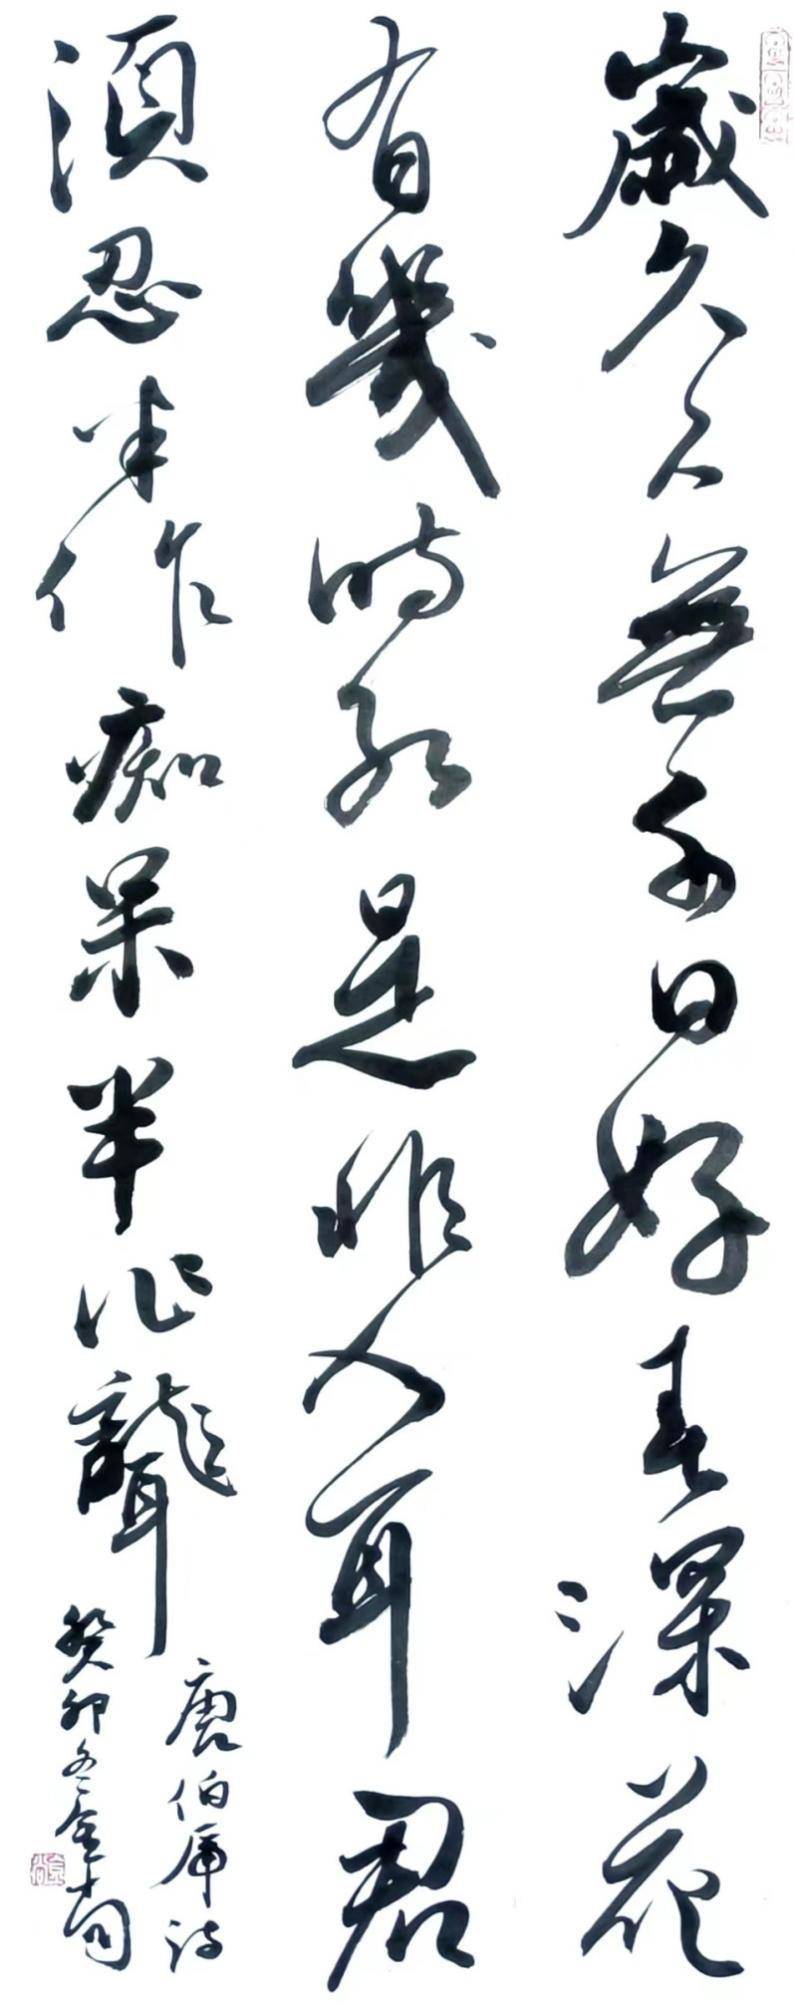 歲久人無千日好春深花
有幾時紅是非入耳君
須忍半作痴呆半作聾
唐伯虎詩
癸卯冬金尚